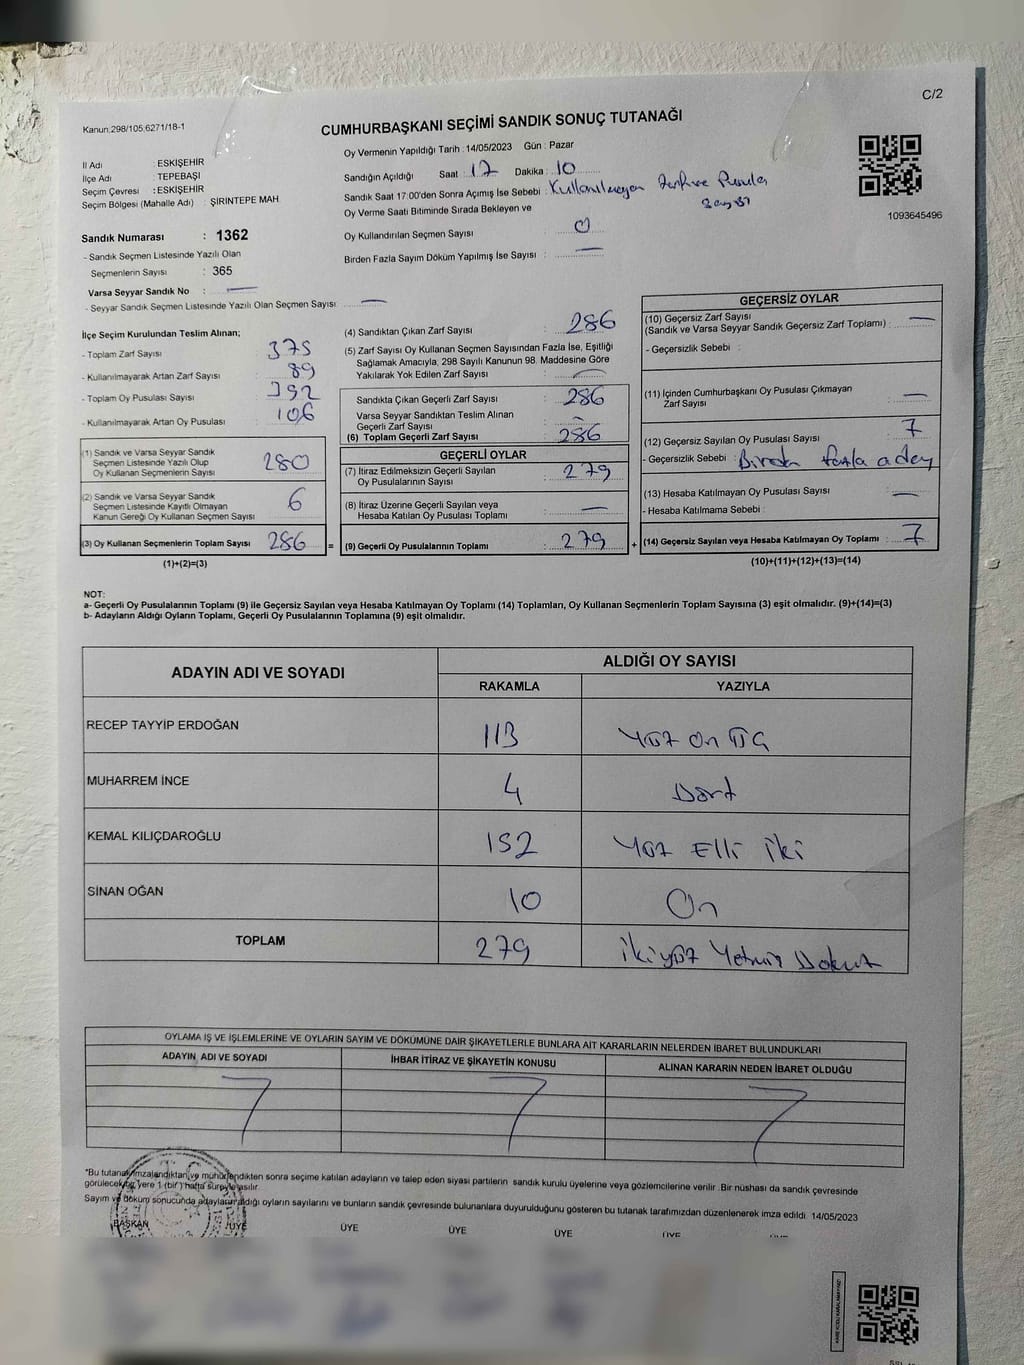 C/2
Kanun:298/105,6271/18-1
CUMHURBAŞKANI SEÇİMİ SANDIK SONUÇ TUTANAĞI
İl Adı : ESKİŞEHİR
İlçe Adı : TEPEBAŞI
Seçim Çevresi : ESKİŞEHİR
Seçim Bölgesi (Mahalle Adı) : ŞİRİNTEPE MAH.
Oy Vermenin Yapıldığı Tarih : 14/05/2023 Gün : Pazar
Sandığın Açıldığı Saat : 17 Dakika : 10
Sandık Saat 17:00'den Sonra Açımış İse Sebebi : Kullanılmayan Zarf ve Pusula
Sayısı
Oy Verme Saati Bitiminde Sırada Bekleyen ve
Oy Kullandırılan Seçmen Sayısı : 0
Birden Fazla Sayım Döküm Yapılmış İse Sayısı : —
1093645496
Sandık Numarası : 1362
- Sandık Seçmen Listesinde Yazılı Olan
Seçmenlerin Sayısı : 365
Varsa Seyyar Sandık No : —
- Seyyar Sandık Seçmen Listesinde Yazılı Olan Seçmen Sayısı : —
İlçe Seçim Kurulundan Teslim Alınan;
- Toplam Zarf Sayısı : 375
- Kullanılmayarak Artan Zarf Sayısı : 89
- Toplam Oy Pusulası Sayısı : 392
- Kullanılmayarak Artan Oy Pusulası : 106
(1) Sandık ve Varsa Seyyar Sandık
Seçmen Listesinde Yazılı Olup
Oy Kullanan Seçmenlerin Sayısı 280
(2) Sandık ve Varsa Seyyar Sandık
Seçmen Listesinde Kayıtlı Olmayan
Kanun Gereği Oy Kullanan Seçmen Sayısı 6
(3) Oy Kullanan Seçmenlerin Toplam Sayısı 286 =
(1)+(2)=(3)
(4) Sandıktan Çıkan Zarf Sayısı : 286
(5) Zarf Sayısı Oy Kullanan Seçmen Sayısından Fazla İse, Eşitliği
Sağlamak Amacıyla, 298 Sayılı Kanunun 98. Maddesine Göre
Yakılarak Yok Edilen Zarf Sayısı : —
Sandıkta Çıkan Geçerli Zarf Sayısı : 286
Varsa Seyyar Sandıktan Teslim Alınan
Geçerli Zarf Sayısı : —
(6) Toplam Geçerli Zarf Sayısı : 286
GEÇERLİ OYLAR
(7) İtiraz Edilmeksizin Geçerli Sayılan
Oy Pusulalarının Sayısı : 279
(8) İtiraz Üzerine Geçerli Sayılan veya
Hesaba Katılan Oy Pusulası Toplamı : —
(9) Geçerli Oy Pusulalarının Toplamı : 279 +
GEÇERSİZ OYLAR
(10) Geçersiz Zarf Sayısı
(Sandık ve Varsa Seyyar Sandık Geçersiz Zarf Toplamı) : —
- Geçersizlik Sebebi :
(11) İçinden Cumhurbaşkanı Oy Pusulası Çıkmayan
Zarf Sayısı : —
(12) Geçersiz Sayılan Oy Pusulası Sayısı : 7
- Geçersizlik Sebebi : Birden fazla aday
(13) Hesaba Katılmayan Oy Pusulası Sayısı : —
- Hesaba Katılmama Sebebi :
(14) Geçersiz Sayılan veya Hesaba Katılmayan Oy Toplamı : 7
(10)+(11)+(12)+(13)=(14)
NOT:
a- Geçerli Oy Pusulalarının Toplamı (9) ile Geçersiz Sayılan veya Hesaba Katılmayan Oy Toplamı (14) Toplamları, Oy Kullanan Seçmenlerin Toplam Sayısına (3) eşit olmalıdır. (9)+(14)=(3)
b- Adayların Aldığı Oyların Toplamı, Geçerli Oy Pusulalarının Toplamına (9) eşit olmalıdır.
ADAYIN ADI VE SOYADI ALDIĞI OY SAYISI
RAKAMLA YAZIYLA
RECEP TAYYİP ERDOĞAN 113 Yüz On Üç
MUHARREM İNCE 4 Dört
KEMAL KILIÇDAROĞLU 152 Yüz Elli İki
SİNAN OĞAN 10 On
TOPLAM 279 İkiyüz Yetmiş Dokuz
OYLAMA İŞ VE İŞLEMLERİNE VE OYLARIN SAYIM VE DÖKÜMÜNE DAİR ŞİKAYETLERLE BUNLARA AİT KARARLARIN NELERDEN İBARET BULUNDUKLARI
ADAYIN ADI VE SOYADI İHBAR İTİRAZ VE ŞİKAYETİN KONUSU ALINAN KARARIN NEDEN İBARET OLDUĞU
*Bu tutanak imzalandıktan ve mühürlendikten sonra seçime katılan adayların ve talep eden siyasi partilerin sandık kurulu üyelerine veya gözlemcilerine verilir. Bir nüshası da sandık çevresinde
görülecek bir yere 1 (bir) hafta süreyle asılır.
Sayım ve döküm sonucunda adayların aldığı oyların sayılarını ve bunların sandık çevresinde bulunanlara duyurulduğunu gösteren bu tutanak tarafımızdan düzenlenerek imza edildi. 14/05/2023
BAŞKAN ÜYE ÜYE ÜYE ÜYE ÜYE